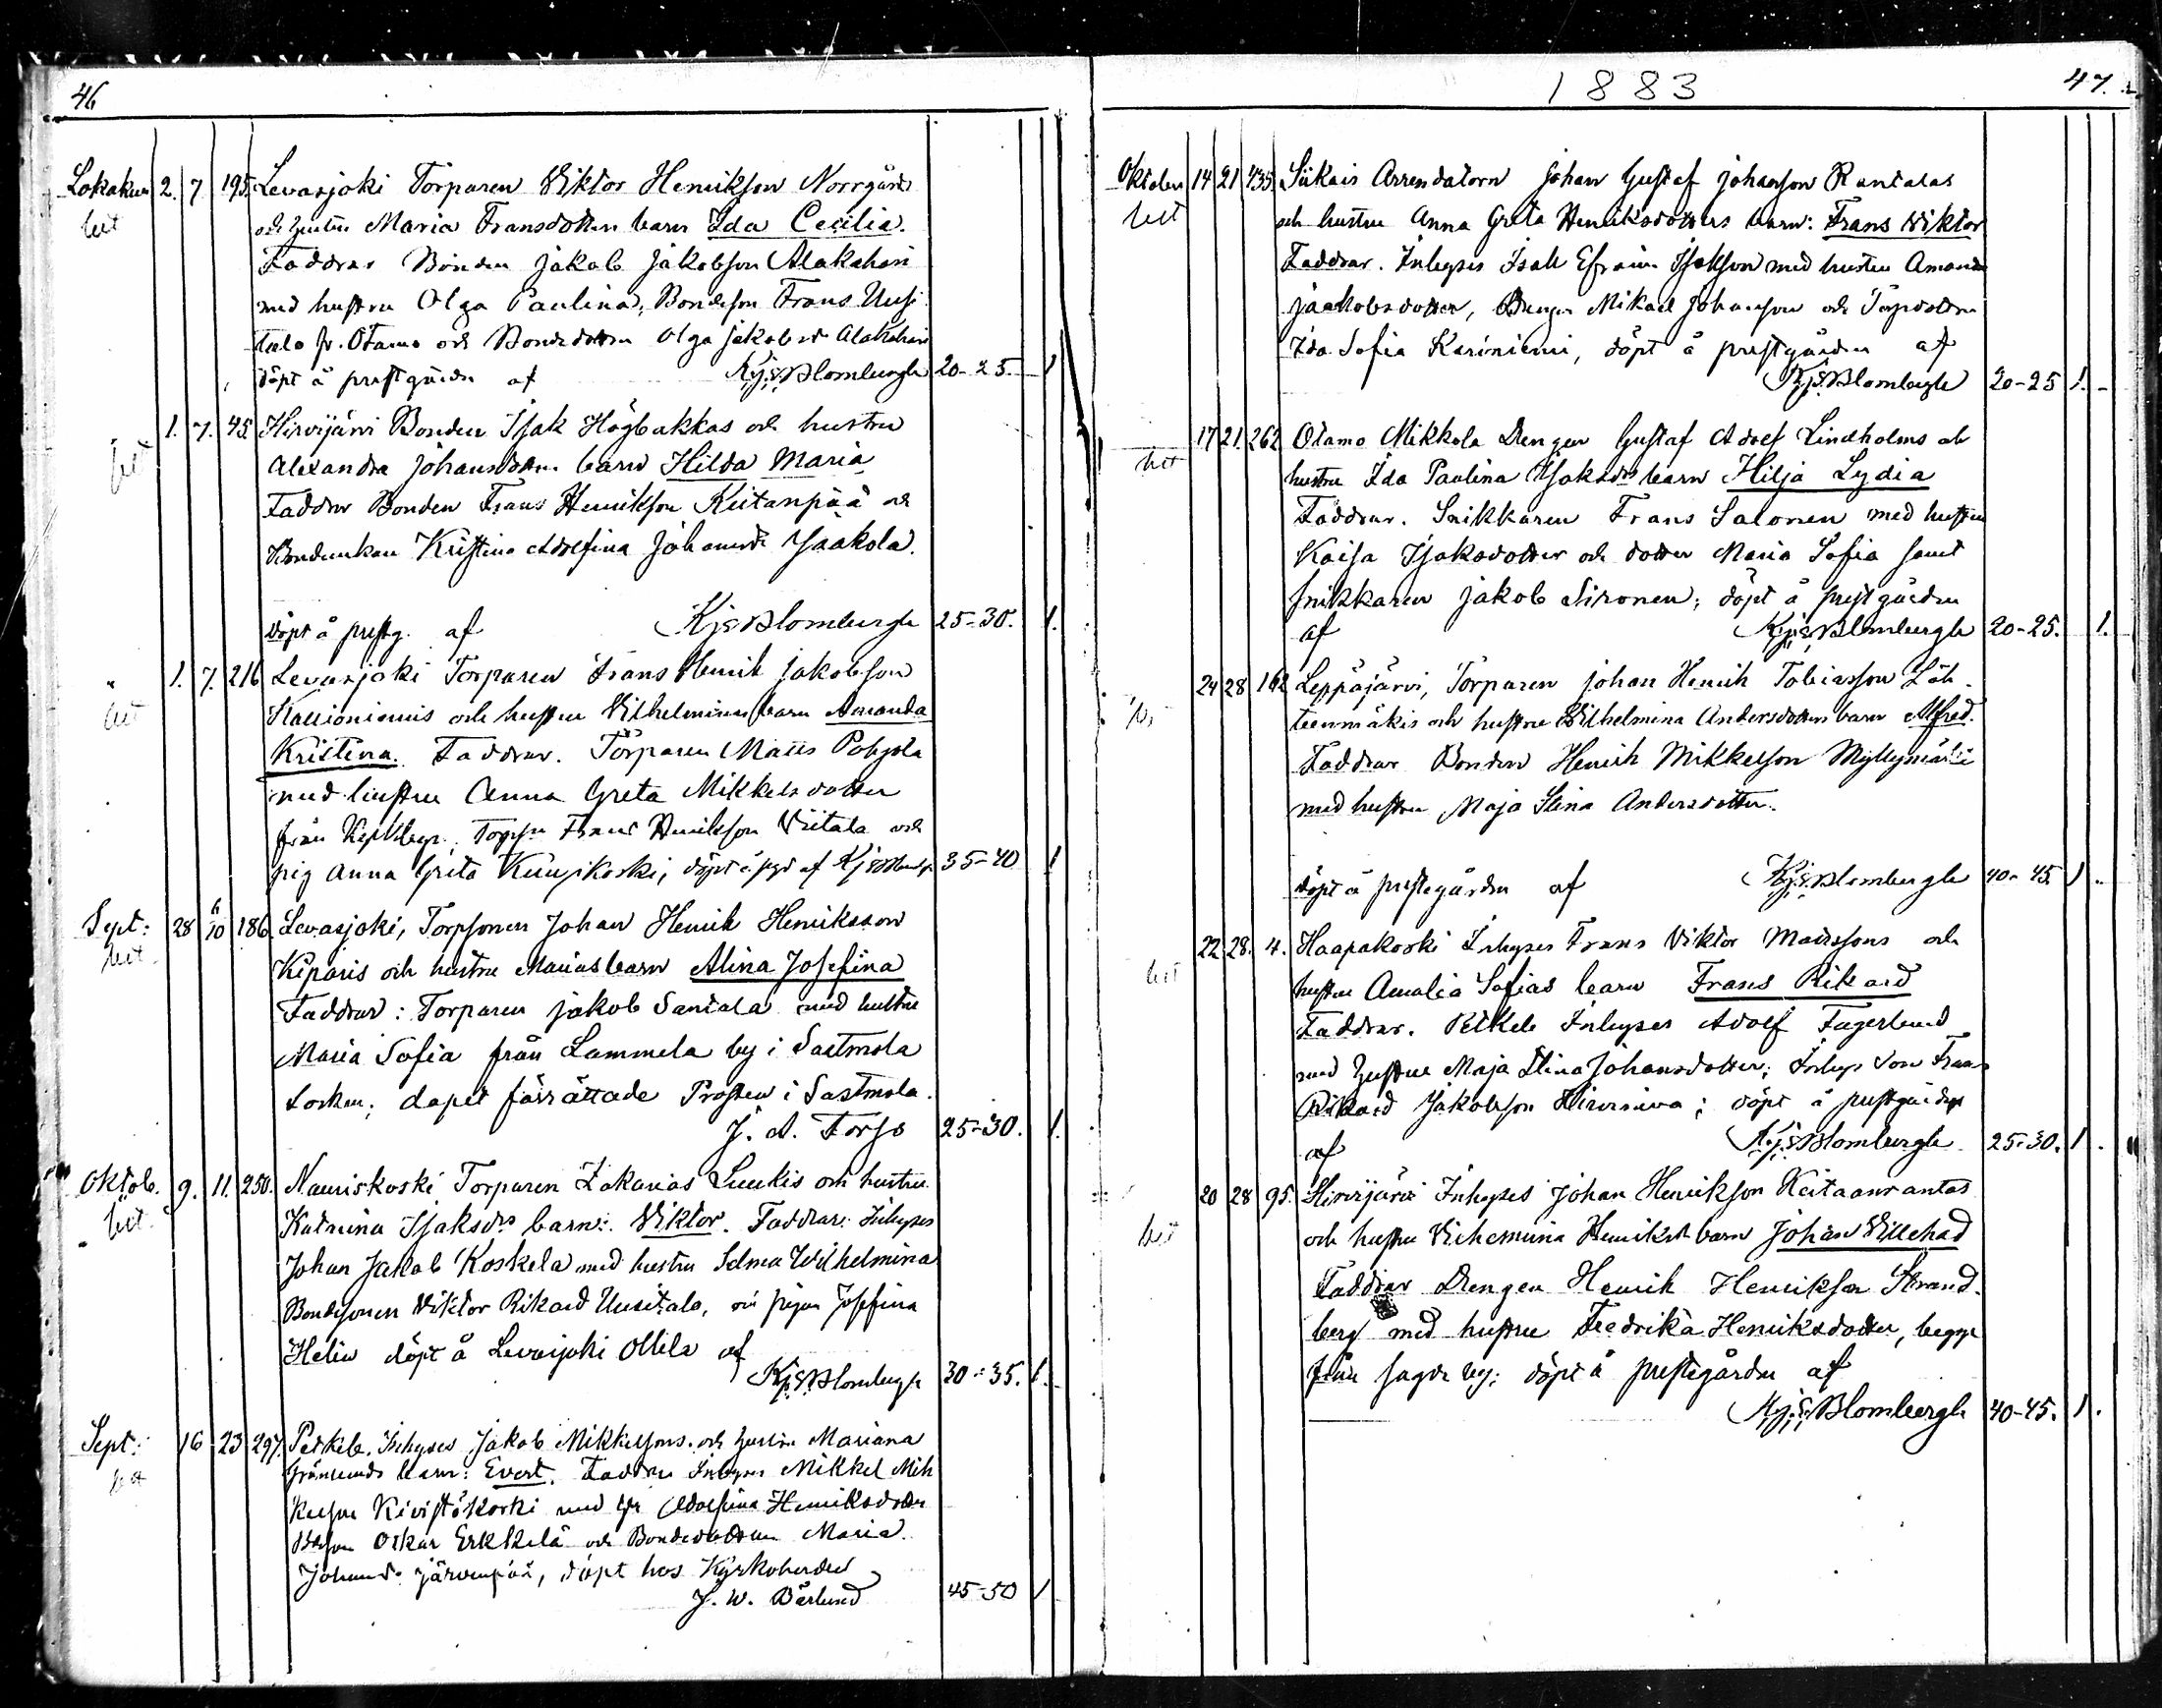 46
Lokakuu 2. 7 195. Levasjoki Torparen Viktor Henrikson Norrgårds
och hustru Maria Fransdotters barn Ida Cecilia.
Faddrar Bonden Jakob Jakobson Alakahari
med hustru Olga Paulina, Bondeson Frans Uusi
talo fr. Otamo och Bondedottren Olga Jakobsd Alakahari
döpt å prestgården af KjEBlombergh 20-25. 1
1. 7. 45. Hirvijärvi Bonden Isak Högbakkas och hustru
Alexandra Johansdotters barn Hilda Maria
Faddrar Bonden Frans Henrikson Kiitanpää och
Bondenkan Kristina Adolfina Johansdr Jaakola.
döpt å prestg. af KjEBlombergh 25-30. 1.
1. 7. 216 Levasjoki Torparen Frans Henrik Jakobson
Kallioniemis och hustru Vilhelminas barn Amanda
Kristina. Faddrar. Torparen Matts Pohjola
med hustru Anna Greta Mikkelsdotter
från Frans Henrikson Viitala och
pig Anna Greta Kuusikoski, döpt å af 35-40 1
Sept: 28 6/10 186. Levasjoki, Torpsonen Johan Henrik Henriksson
Kiparis och hustru Marias barn Alina Josefina
Faddrar: Torparen Jakob Santala med hustru
Maria Sofia från Lammela by i Sastmola
socken; dopet förrättade Prosten i Sastmola.
J. A. Forss 25-30. 1.
Oktob. 9. 11. 250. Nauriskoski Torparen Zakarias Luukis och hustru
Katarina Isaksdrs barn: Viktor. Faddrar: Inhyses
Johan Jakob Koskela med hustru Selma Wilhelmina
Bondesonen Viktor Rikard Uusitalo, och pigan Josefina
Helin döpt å Levasjoki Ollila af
KjEBlombergh 30-35. 1.
Sept: 16 23 297. Petkele. Inhyses Jakob Mikkelsons och hustru Mariana
Grönlunds barn: Evert. Faddrar Inhyses Mikkel Mik
kelson Kivistökoski med hu Adolfina Henriksdotter
Oskar Erkkilä och Bondedottren Maria
Johansdr Järvenpää, döpt hos Kyrkoherden
J. W. Bärlund 45-50 1
1883
47.
Oktober 14 21 135 Siikais Arrendatorn Johan Gustaf Johanson Rantalas
och hustru Anna Greta Henriksdotters barn: Frans Viktor
Faddrar. Inhyses Isak Efraim Isakson med hustru Amanda
Jaakobsdotter, Drengen Mikael Johanson och Torpdottren
Ida Sofia Kariniemi, döpt å prestgården af
KjEBlombergh 20-25 1.
17 21. 262 Otamo Mikkola Drengen Gustaf Adolf Lindholms och
hustru Ida Paulina Isaksdrs barn Hilja Lydia
Faddrar. Snikkaren Frans Salonen med hustru
Kaisa Isaksdotter och dotter Maria Sofia samt
snikkaren Jakob Sironen; döpt å prestgården
af KjEBlombergh 20-25. 1.
24 28 162 Leppäjärvi, Torparen Johan Henrik Tobiasson Läh-
teenmäkis och hustru Wilhelmina Andersdotters barn Alfred.
Faddrar Bonden Henrik Mikkelson Myllymäki
med hustru Maja Stina Andersdotter.
döpt å prestegården af KjEBlombergh 40-45. 1
22. 28. 4. Haapakoski Inhyses Frans Viktor Matssons och
hustru Amalia Sofias barn Frans Rikard
Faddrar. Petkele Inhyses Adolf Fagerlund
med hustru Maja Stina Johansdotter; Inhys son Frans
Rikard Jakobson Hirvineva; döpt å prestgården
af KjEBlombergh 25-30. 1.
20 28 95. Hirvijärvi Inhyses Johan Henrikson Keitaanrantas
och hustru Vilhelmina Henriksd barn Johan Villehad
Faddrar Drengen Henrik Henrikson Strand-
berg med hustru Fredrika Henriksdotter, begge
från sagde by; döpt å prestegården af
KjEBlombergh 40-45. 1.